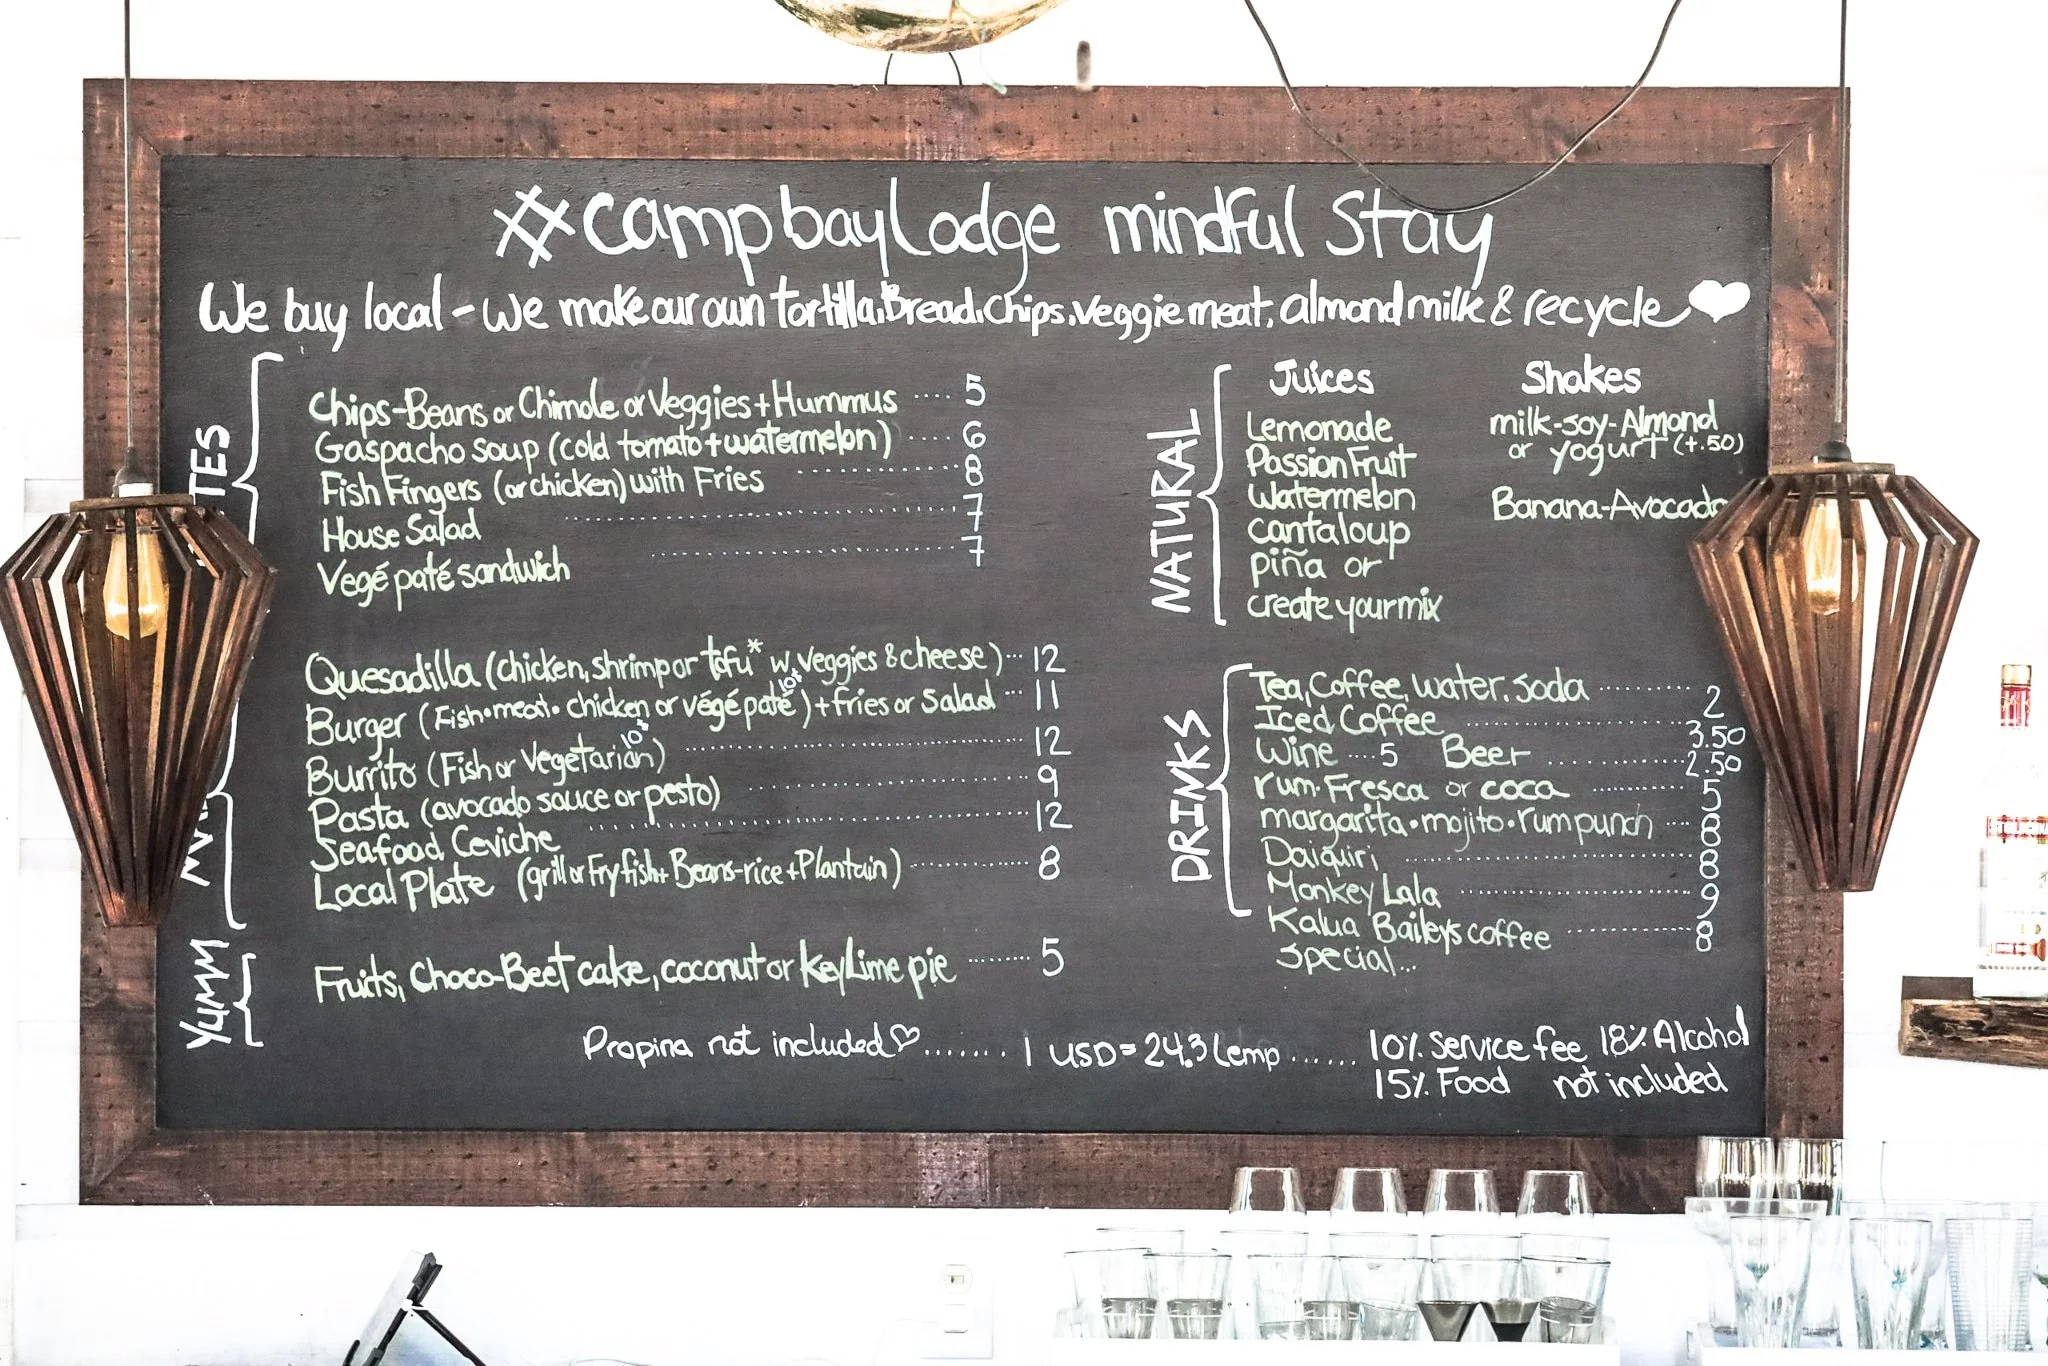 #campbaylodge mindful stay
We buy local - We make our own tortilla, Bread, Chips, veggie meat, almond milk & recycle
TES
Chips-Beans or Chimole or Veggies + Hummus .... 5
Gaspacho soup (cold tomato + watermelon) .... 6
Fish Fingers (or chicken) with Fries .... 8
House Salad .... 7
Vegé paté sandwich .... 7
Quesadilla (chicken, shrimp or tofu* w. veggies & cheese) ... 12
Burger (Fish • meat • chicken or végé paté 10*) + fries or salad ... 11
Burrito (Fish or Vegetarian 10*) .... 12
Pasta (avocado sauce or pesto) .... 9
Seafood Ceviche .... 12
Local Plate (grill or Fry fish + Beans-rice + Plantain) .... 8
YUMM
Fruits, Choco-Beet cake, coconut or Key Lime pie .... 5
NATURAL
Juices
Lemonade
Passion Fruit
Watermelon
Cantaloup
piña or
create your mix
Shakes
milk-soy-Almond
or yogurt (+.50)
Banana-Avocado
DRINKS
Tea, Coffee, water. Soda .... 2
Iced Coffee .... 3.50
Wine ... 5 Beer .... 2.50
rum. Fresca or coca .... 5
margarita • mojito • rum punch ... 8
Daiquiri .... 8
Monkey Lala .... 9
Kalua Baileys coffee .... 8
Special...
Propina not included ....... 1 USD = 24.3 Lemp ...... 10% Service fee 18% Alcohol
15% Food not included